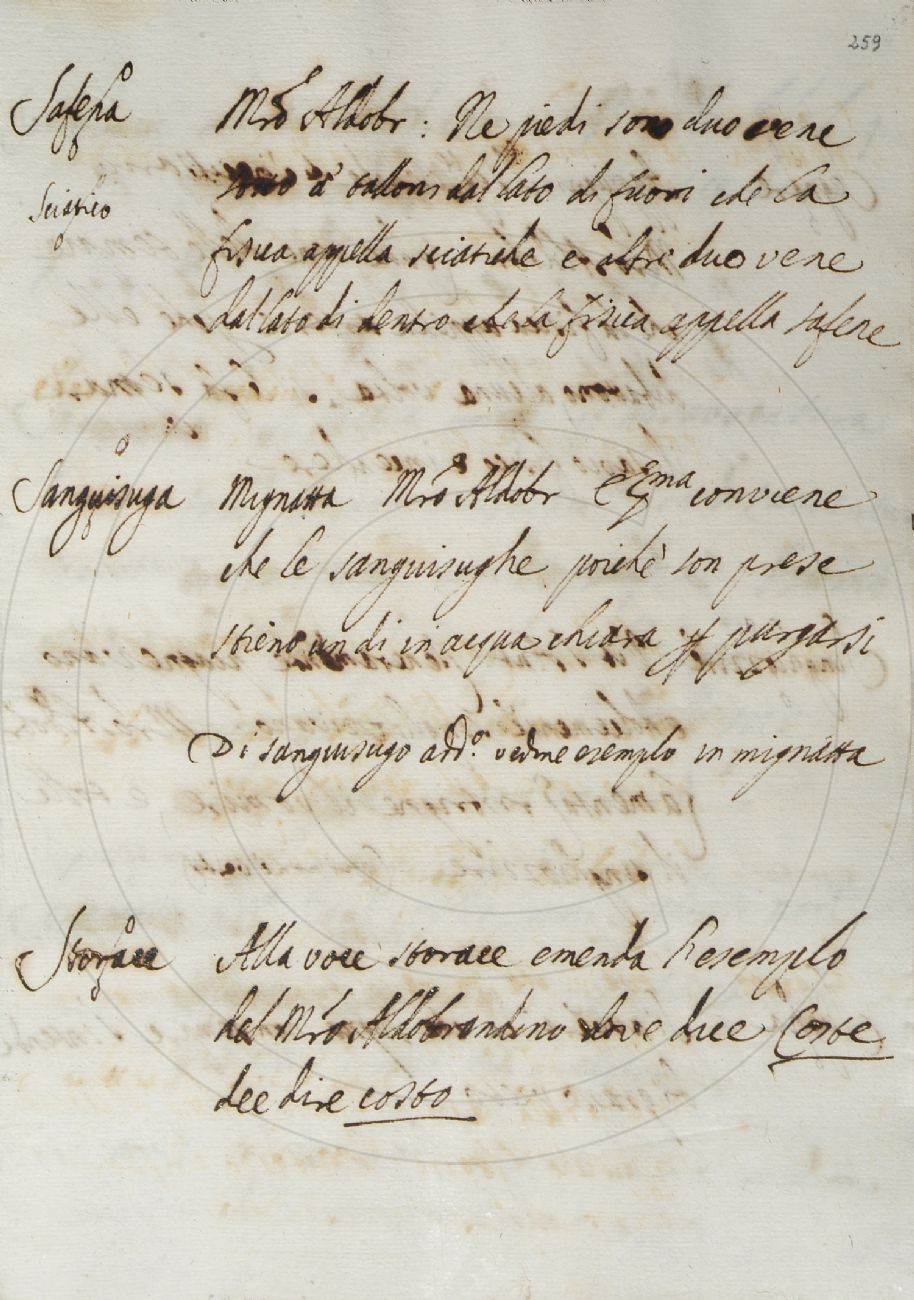 259
Safena Mro Aldobr: Ne piedi sono duo vene
Sciatico sotto a' talloni dal lato di fuori che la
fisica appella sciatiche e altre duo vene
dal lato di dentro che la fisica appella safene
Sanguisuga Mignatta Mro Aldobr conviene
che le sanguisughe poichè son prese
stieno un di in acqua chiara p purgarsi
Di sanguisugo add.o vedine esemplo in mignatta
Storace Alla voce storace emenda l'esemplo
del Mro Aldobrandino dove dice Coste
dee dire costo